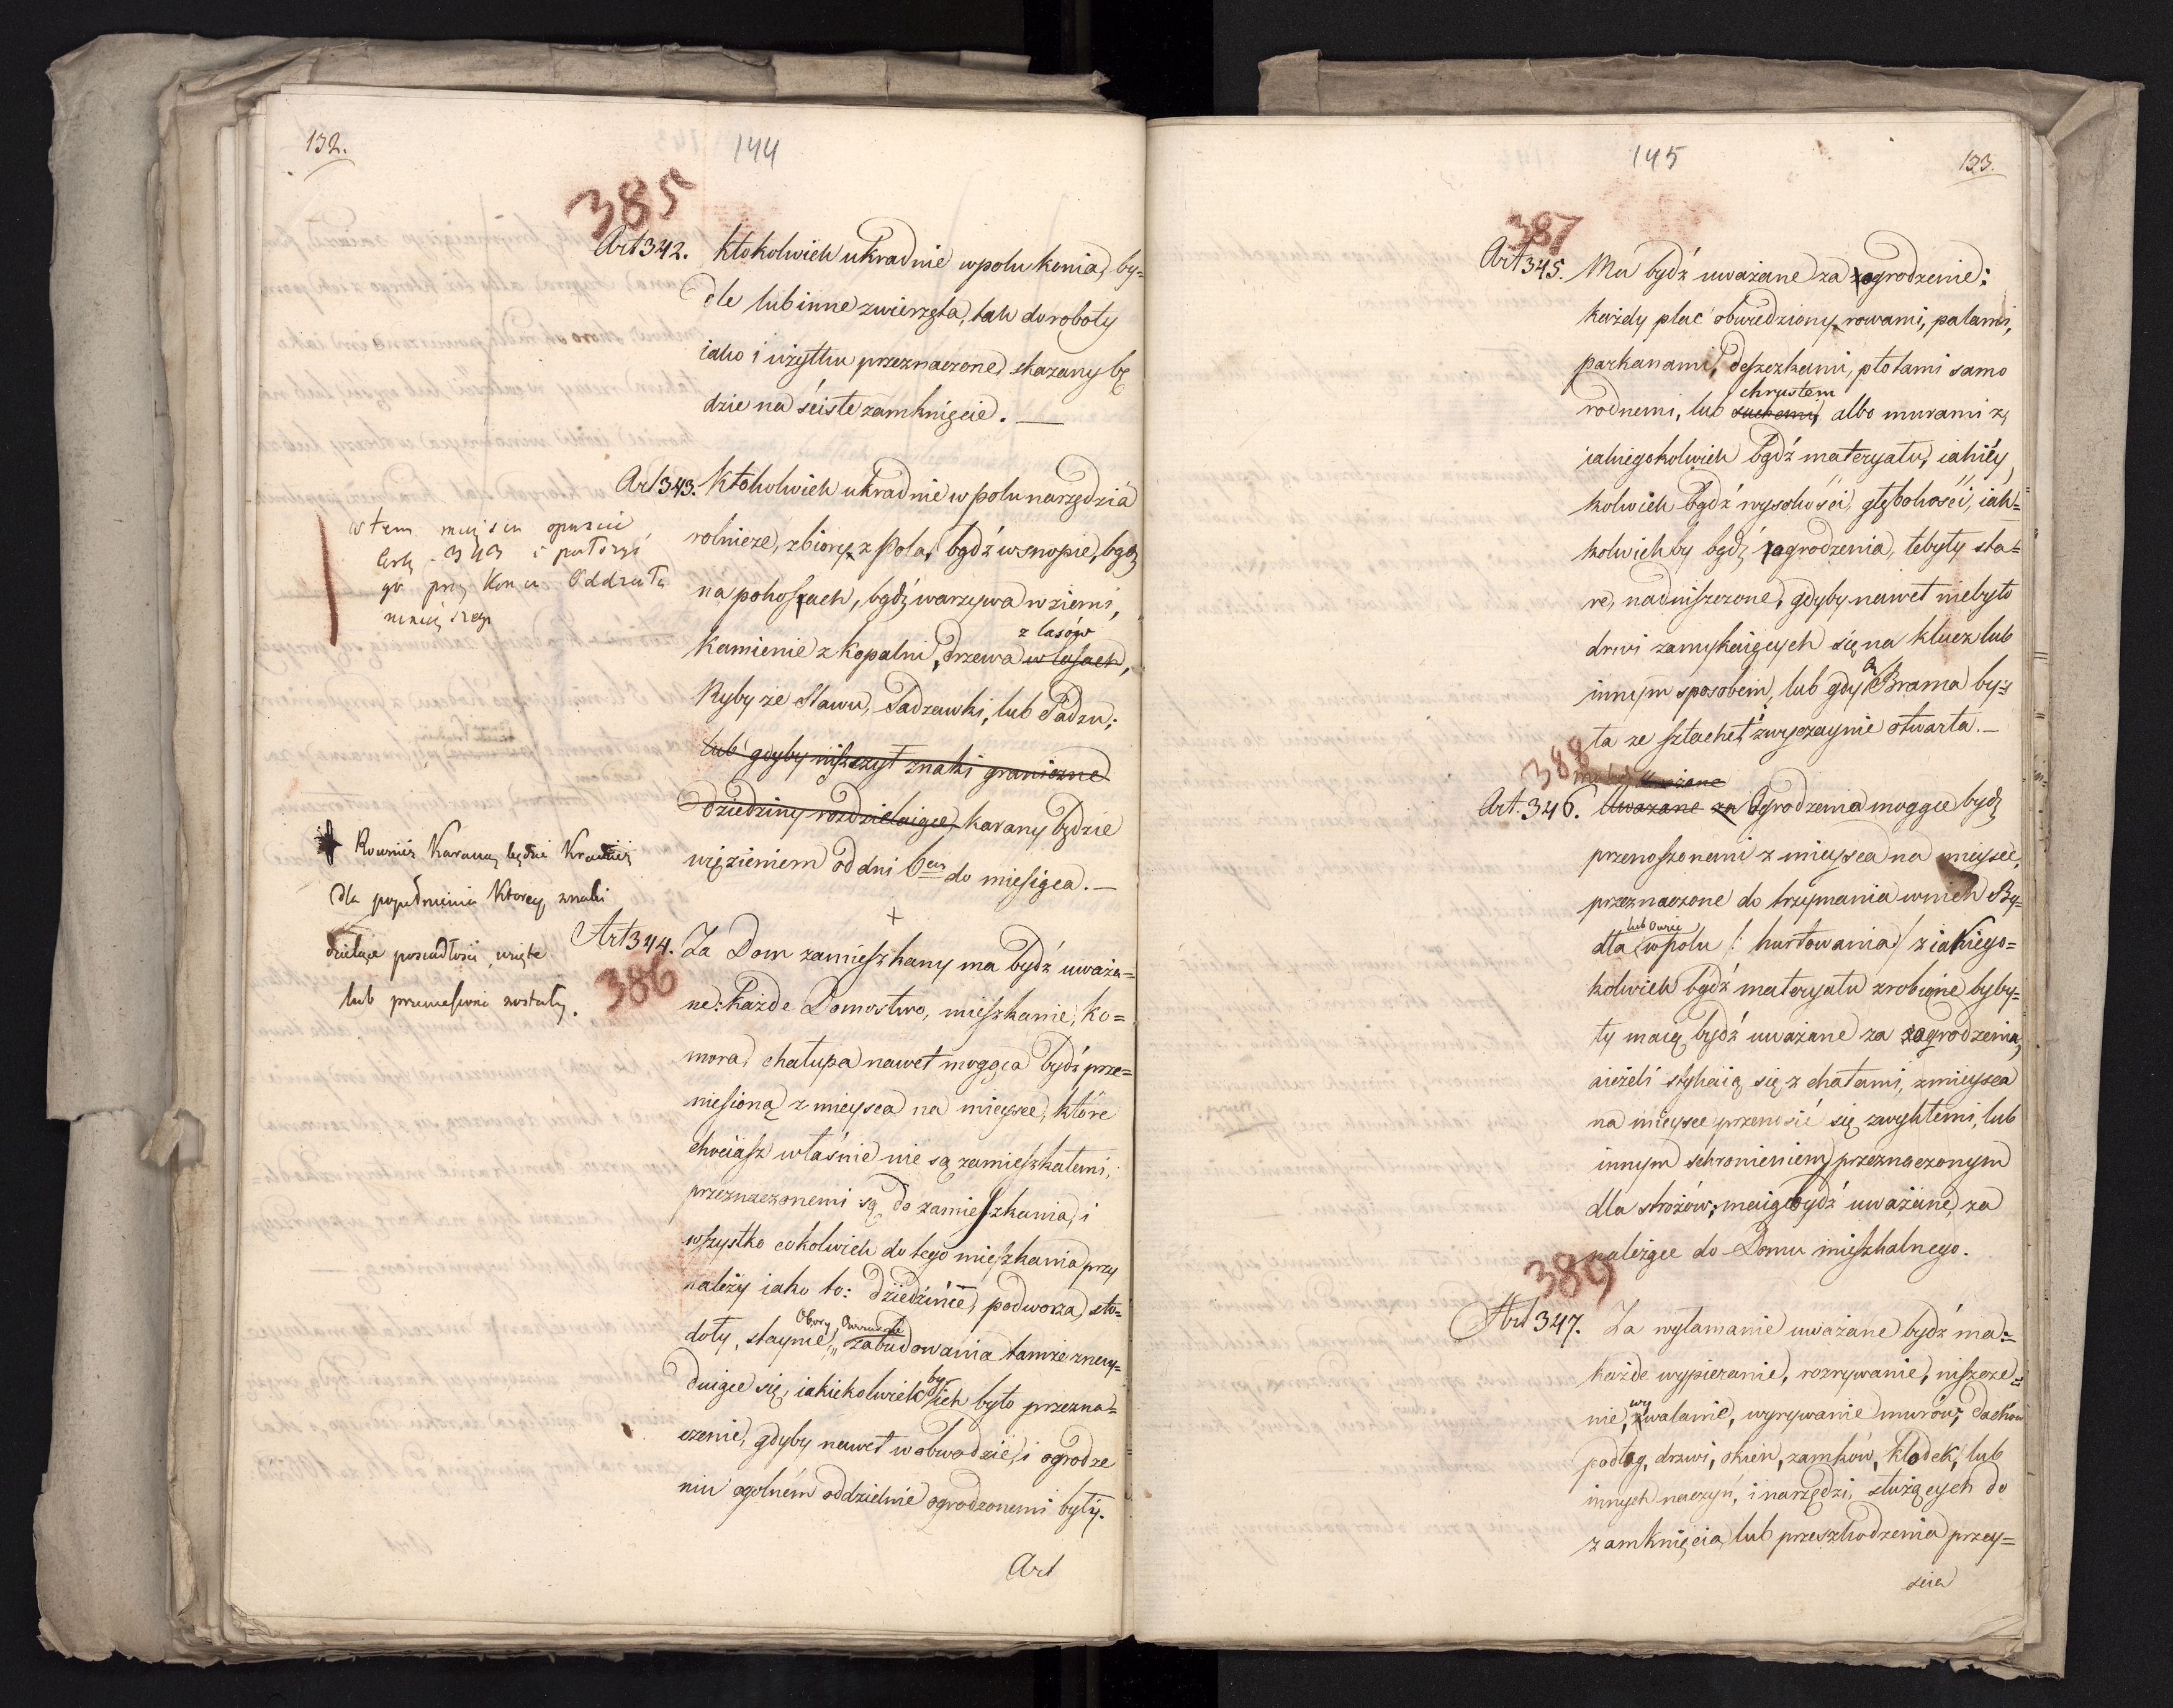 132.
144
385
Art 342. Ktokolwiek ukradnie w polu konia, by=
dle lub inne zwierzęta, tak do roboty
iako i użytku przeznaczone, skazany bę
dzie na ściste zamknięcie. —
Art 343. Ktokolwiek ukradnie w polu narzędzia
rolnicze, zbiory z Pola, bądź w snopie, bądź
na pokosach, bądź warzywa w ziemi,
z lasów
Kamienie z Kopalni, drzewa w lasach,
Ryby ze Stawu, Sadzawki, lub Sadzu;
lub gdyby niszczył znaki graniczne
dziedziny rozdzielaiące, karany będzie
więzieniem od dni 6ciu do miesiąca. —
w tem mieyscu opuścić
Arty 343 i położyć
go przy koncu Oddziału
ninieyszego
Rownież Karany będzie Kradzież
dla popełnienia Ktorey, znaki
dzielące posiadłości, wzięte
lub przeniesione zostały.
+
Art 344. Za Dom zamieszkany ma bydź uważa=
386
ne: Każde Domostwo, mieszkanie, ko=
mora, chałupa nawet mogąca bydź prze=
niesioną z mieysca na mieysce, które
chociasz właśnie nie są zamieszkałemi,
przeznaczonemi są do zamieszkania, i
wszystko cokolwiek do tego mieszkania przy
należy iako to: dziedzińce, podworza, sto=
Obory, Owczarnie
doły, staynie, zabudowania tamże znay=
by
duiące się, iakiekolwiek ich było przezna=
czenie, gdyby nawet w obwodzie, i ogrodze
niu ogólném oddzielnie ogrodzonemi były.
Art
145
133.
387
Art 345. Ma bydź uważane za ogrodzenie:
każdy plac obwiedziony rowami, palami,
parkanami, deszczkami, płotami samo
chrustem
rodnemi, lub suchemi, albo murami z
iakiegokolwiek bądź materyału, iakiéy
kolwiek bądź wysokości, głębokości, iak=
kolwiekby bądź ogrodzenia, te były sta=
re, nadniszczone, gdyby nawet niebyło
drzwi zamykaiących się na klucz lub
innym sposobem, lub gdyby Brama by=
ła ze sztachet, zwyczaynie otwarta. —
388
Uważane
Art. 346. Uważane za Ogrodzenia mogące bydź
przenoszonemi z mieysca na mieysce,
przeznaczone do trzymania w nich By=
lub Owiec
dła w polu /: hurtowania / z iakiego=
kolwiek bądź materyału zrobione byby=
ły maią bydź uważane za ogrodzenia,
a ieżeli stykaią się z chatami, z mieysca
na mieysce przenosić się zwykłemi, lub
innym schronieniem przeznaczonym
dla strożów; maią bydź uważane, za
należące do Domu mieszkalnego.
389
Art 347. Za wyłamanie uważane bydź ma:=
każde wypieranie, rozrywanie, niszcze=
wy
nie, walanie, wyrywanie murów, dachów
podłog, drzwi, okien, zamków, kłodek, lub
innych naczyń, i narzędzi, służących do
zamknięcia, lub przeszkodzenia przey=
scia